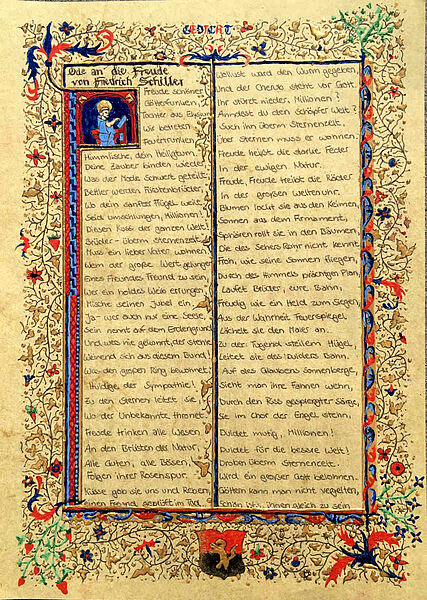 GEDICHT
Ode an die Freude
von Friedrich Schiller
Freude schöner
Götterfunken,
Tochter aus Elysium
Wir betreten
Feuertrunken,
Himmlische, dein Heiligtum.
Deine Zauber binden wieder,
Was der Mode Schwert geteilt,
Bettler werden Fürstenbrüder,
Wo dein sanfter Flügel weilt.
Seid umschlungen, Millionen!
Diesen Kuss der ganzen Welt!
Brüder - überm Sternenzelt
Muss ein lieber Vater wohnen.
Wem der große Wurf gelungen
Eines Freundes Freund zu sein,
Wer ein holdes Weib errungen,
Mische seinen Jubel ein,
Ja - wer auch nur eine Seele,
Sein nennt auf dem Erdengrund
Und wers nie gekonnt, der stehle
Weinend sich aus diesem Bund!
Was den großen Ring bewohnet,
Huldige der Sympathie!
Zu den Sternen leitet sie,
Wo der Unbekannte thronet.
Freude trinken alle Wesen
An den Brüsten der Natur,
Alle Guten, alle Bösen,
Folgen ihrer Rosenspur.
Küsse gab sie uns und Reben,
einen Freund, geprüft im Tod,
Wollust ward dem Wurm gegeben,
Und der Cherub steht vor Gott.
Ihr stürzt nieder, Millionen?
Ahndest du den Schöpfer Welt?
Such ihn überm Sternenzelt,
Über Sternen muss er wohnen.
Freude heißt die starke Feder
In der ewigen Natur.
Freude, Freude treibt die Räder
In der großen Weltenuhr.
Blumen lockt sie aus den Keimen,
Sonnen aus dem Firmament,
Sphären rollt sie in den Räumen
Die des Sehers Rohr nicht kennt.
Froh, wie seine Sonnen fliegen,
Durch des Himmels prächtgen Plan,
Laufet Brüder, eure Bahn,
Freudig wie ein Held zum Siegen,
Aus der Wahrheit Feuerspiegel
Lächelt sie den         an.
Zu der Tugend steilem Hügel
Leitet sie des Dulders Bahn.
Auf des Glaubens Sonnenberge,
Sieht man ihre Fahnen wehn,
Durch den Riss gesprengter Särge,
Sie im Chor der Engel stehn,
Duldet mutig, Millionen!
Duldet für die bessre Welt!
Droben überm Sternenzelt
Wird ein großer Gott belohnen.
Göttern kann man nicht vergelten,
Schön ists, ihnen gleich zu sein